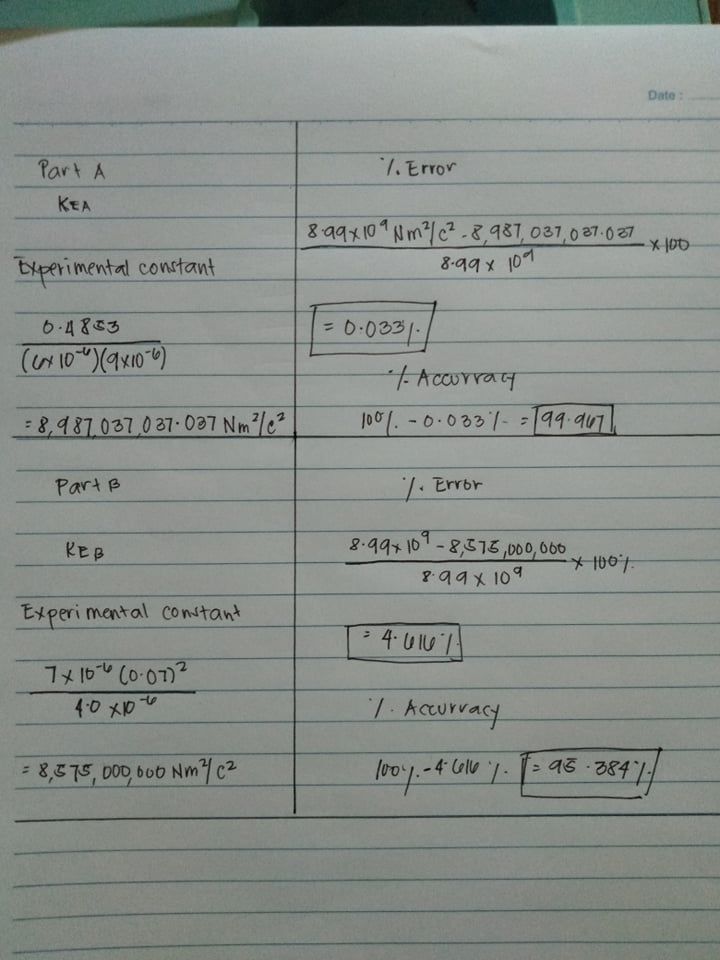 Date :
Part A
KEA
Experimental constant
0.4853
(6x10^-6)(9x10^-6)
=8,987,037,037.037 Nm²/c²
% Error
8.99x10^9 Nm²/c² - 8,987,037,037.037
8.99 x 10^9
x100
= 0.033%
% Accurracy
100% - 0.033% = 99.967
Part B
KEB
Experimental constant
7x10^-6 (0.07)²
4.0 x10^-6
= 8,575,000,000 Nm²/c²
% Error
8.99x10^9 - 8,575,000,000
8.99 x 10^9
x 100%
= 4.616%
% Accurracy
100% - 4.616% = 95.384%